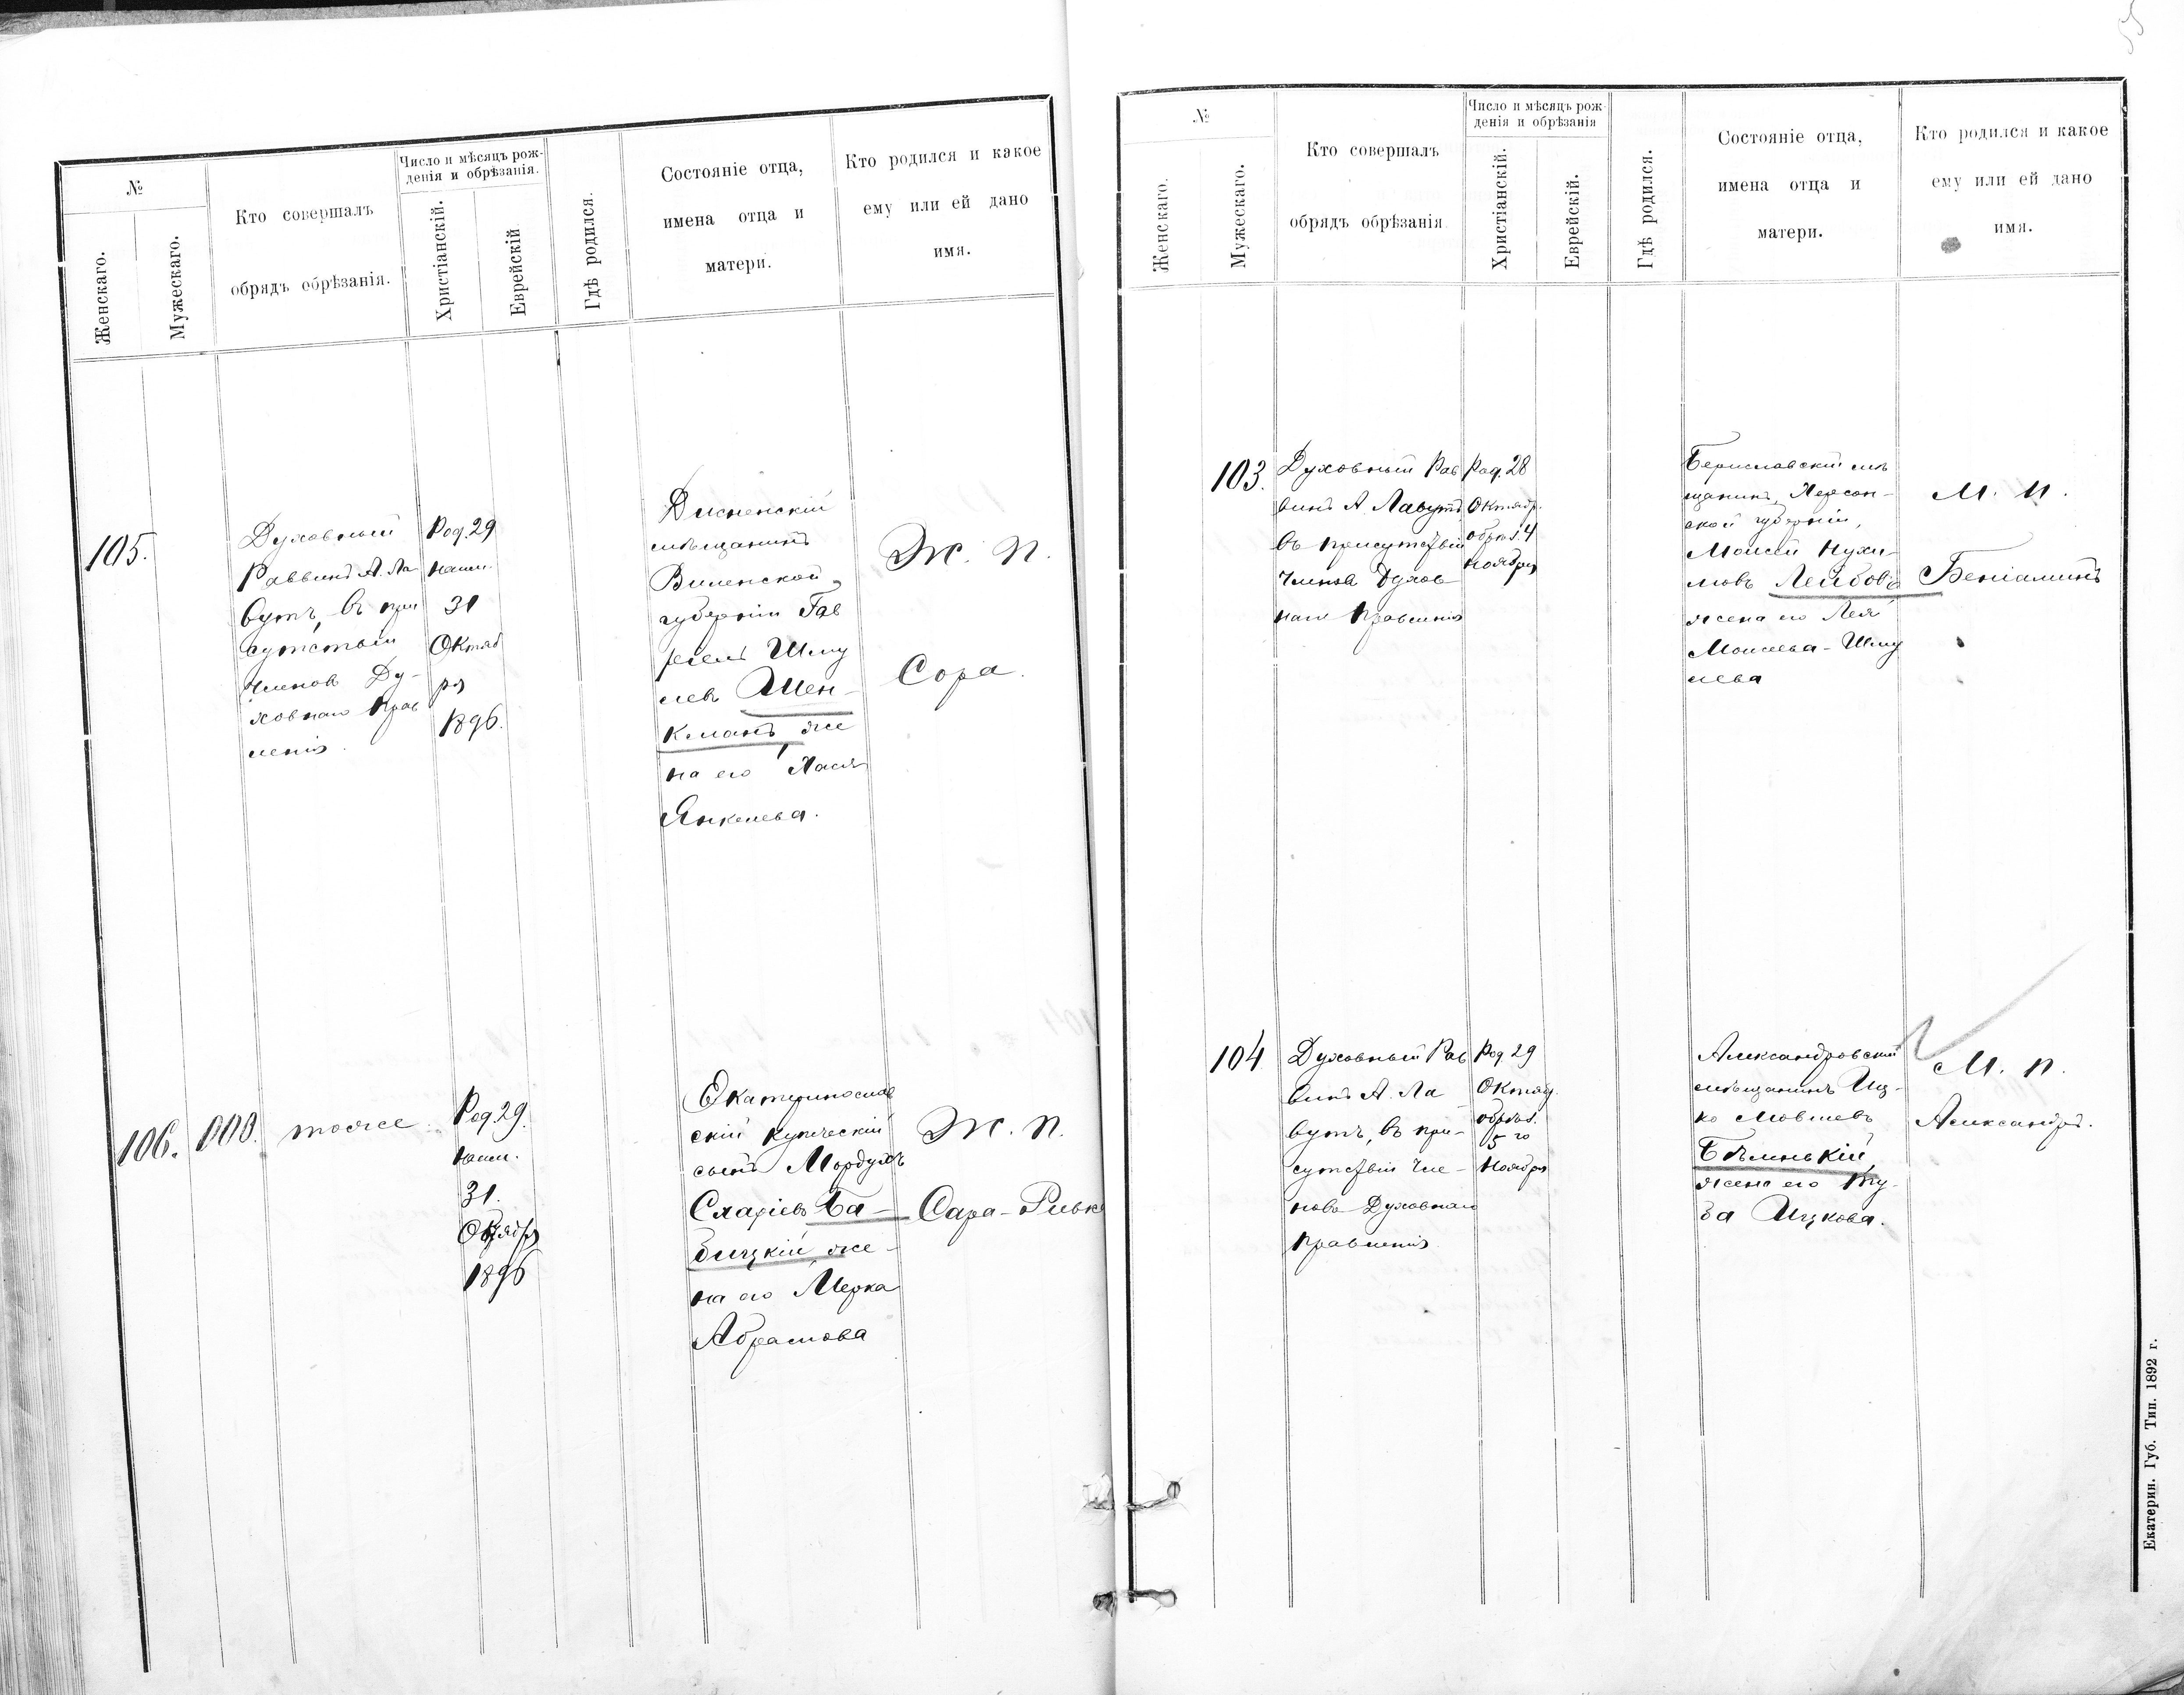 №
Женскаго.
Мужескаго.
Кто совершалъ
обрядъ обрѣзанія.
Число и мѣсяцъ рож-
денія и обрѣзанія.
Христіанскій.
Еврейскій
Гдѣ родился.
Состояніе отца,
имена отца и
матери.
Кто родился и какое
ему или ей дано
имя.
105.
Духовный
Раввинъ А. Ла
вутъ, въ при
сутствіи
членовъ Ду-
ховнаго Прав
ленія.
Род. 29
наим.
31
Октяб
ря
1896.
Дисненскій
мѣщанинъ
Виленской
губерніи Гав
ріелъ Шму
левъ Шен-
кманъ, же
на его Хася
Янкелева.
Ж. п.
Сора.
106.
тоже
Род. 29.
наим.
31.
Октября
1896
Екатеринослав
скій купеческій
сынъ Мордухъ
Срарiевъ Ба-
бицкій, же-
на его Мерка
Абрамова
Ж. п.
Сара-Ривка
№
Женскаго.
Мужескаго.
Кто совершалъ
обрядъ обрѣзанія
Число и мѣсяцъ рож-
денія и обрѣзанія
Христіанскій.
Еврейскій.
Гдѣ родился.
Состояніе отца,
имена отца и
матери.
Кто родился и какое
ему или ей дано
имя.
103.
Духовный Рав
винъ А. Лавутъ,
въ присутствіи
членовъ Духов
наго Правленія
Род. 28
Октябр.
обрѣз. 4
Ноября
Бериславскій мѣ
щанинъ, Херсон-
ской губерніи,
Моисей Нухи-
мовъ Лейбовъ
жена его Лея
Моисеева-Шму
лева
М. п.
Беніаминъ
104
Духовный Рав
винъ А. Ла
вутъ, въ при-
сутствіи чле-
новъ Духовнаго
Правленія
Род 29
Октяб.
обрѣз.
5 го
Ноября
Александровскій
мѣщанинъ Иц-
ко Мовшевъ
Бѣлинькій,
жена его Ту-
ба Ицкова.
М. п.
Александръ.
Екатерин. Губ. Тип. 1892 г.